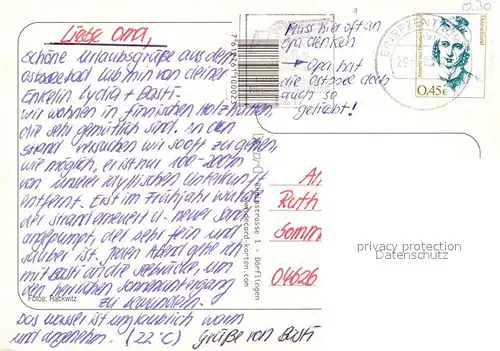 Liebe Oma,
schöne Urlaubsgrüße aus dem
Ostseebad Lubmin von deiner
Enkelin Lydia + Basti.
Wir wohnen in finnischen Holzhütten,
die sehr gemütlich sind. An den
Strand versuchen wir so oft zu gehen,
wie möglich, er ist nur 100-200m
von unserer idyllischen Unterkunft
entfernt. Erst im Frühjahr wurde
der Strand erneuert d. neuer Sand
angepumpt, der sehr fein und
sauber ist. Jeden Abend gehe ich
mit Basti an die Seebrücke, um
den herrlichen Sonnenuntergang
zu bewundern.
Das Wasser ist unglaublich warm
und angenehm. (22°C) Grüße von Basti
Fotos: Rackwitz
Muss hier oft an
Opa denken
→ Opa hat
die Ostsee doch
auch so
geliebt!
0.30
BRIEFZENTRUM
Deutschland
0,45€
An
Ruth
Somm
04626
strasse 1 - Dörflingen
card-karten.com
privacy protection
Datenschutz